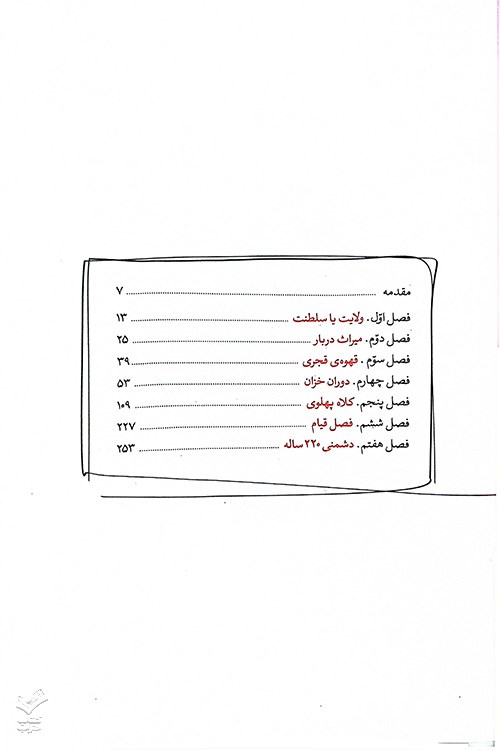 مقدمه ........................ ۷
فصل اوّل. ولایت یا سلطنت ........................ ۱۳
فصل دوّم. میراث دربار ........................ ۲۵
فصل سوّم . قهوه‌ی قجری ........................ ۳۹
فصل چهارم. دوران خزان ........................ ۵۳
فصل پنجم. کلاه پهلوی ........................ ۱۰۹
فصل ششم. فصل قیام ........................ ۲۲۷
فصل هفتم. دشمنی ۲۲۰ ساله ........................ ۲۵۳